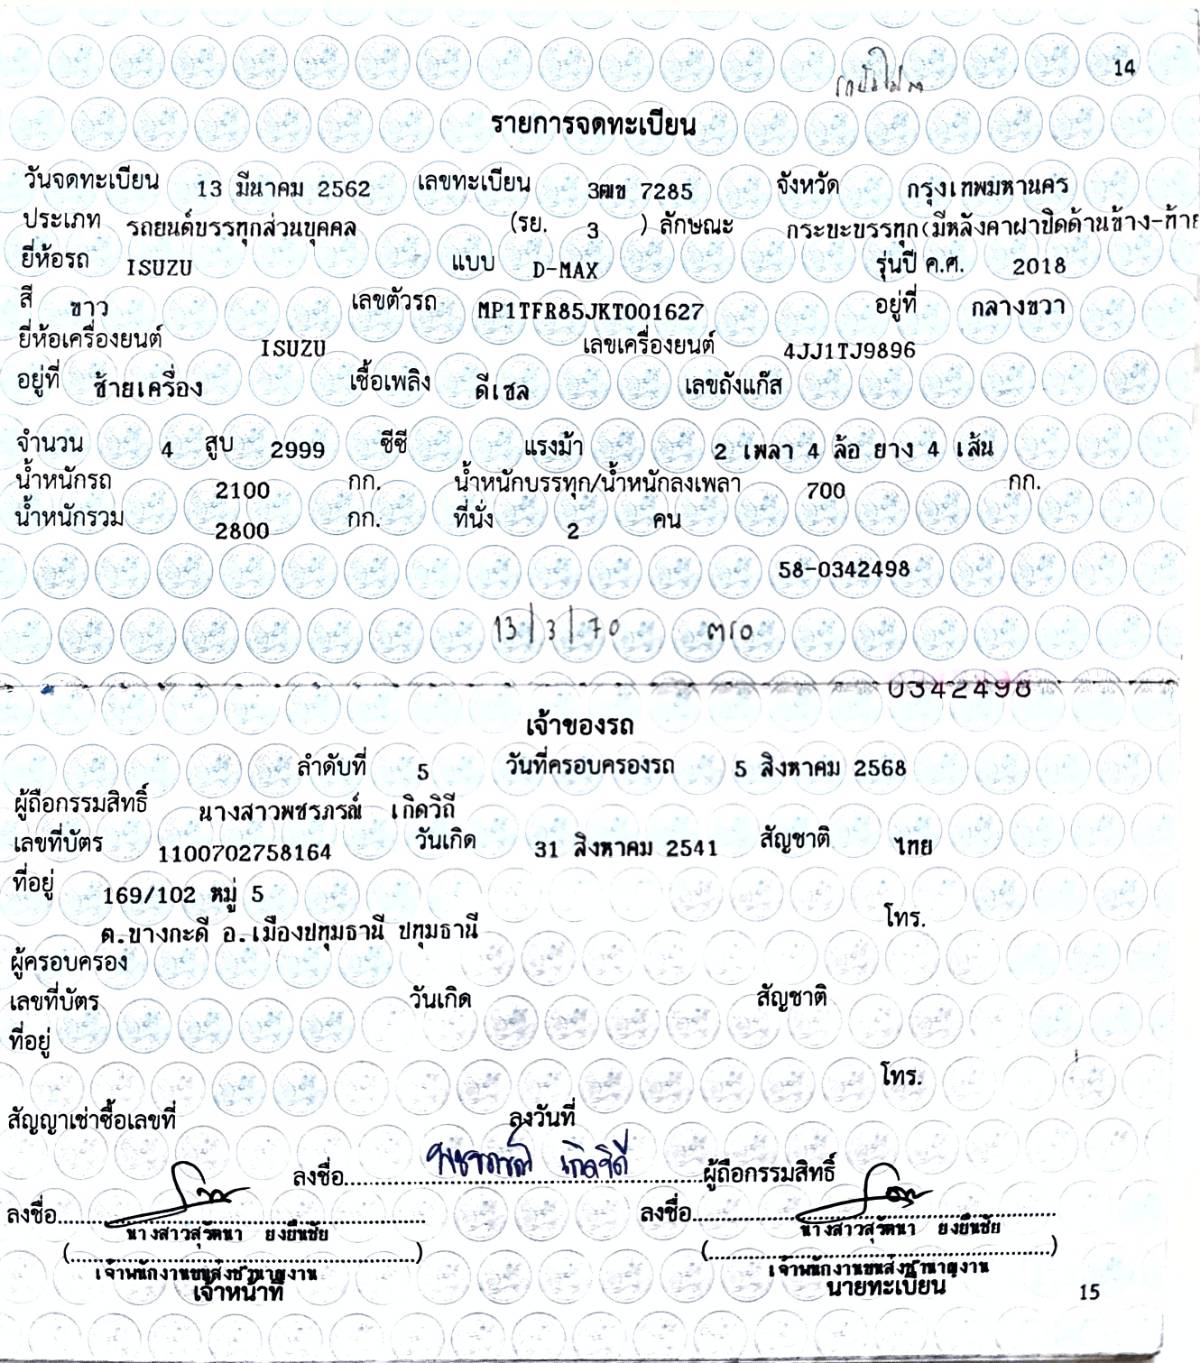 14
รายการจดทะเบียน
วันจดทะเบียน 13 มีนาคม 2562 เลขทะเบียน 3ฒข 7285 จังหวัด กรุงเทพมหานคร
ประเภท รถยนต์บรรทุกส่วนบุคคล (รย. 3 ) ลักษณะ กระบะบรรทุก(มีหลังคาฝาปิดด้านข้าง-ท้าย
ยี่ห้อรถ ISUZU แบบ D-MAX รุ่นปี ค.ศ. 2018
สี ขาว เลขตัวรถ MP1TFR85JKT001627 อยู่ที่ กลางขวา
ยี่ห้อเครื่องยนต์ ISUZU เลขเครื่องยนต์ 4JJ1TJ9896
อยู่ที่ ซ้ายเครื่อง เชื้อเพลิง ดีเซล เลขถังแก๊ส
จำนวน 4 สูบ 2999 ซีซี แรงม้า 2 เพลา 4 ล้อ ยาง 4 เส้น
น้ำหนักรถ 2100 กก. น้ำหนักบรรทุก/น้ำหนักลงเพลา 700 กก.
น้ำหนักรวม 2800 กก. ที่นั่ง 2 คน
58-0342498
13/3/70 ตรอ
0342498
เจ้าของรถ
ลำดับที่ 5 วันที่ครอบครองรถ 5 สิงหาคม 2568
ผู้ถือกรรมสิทธิ์ นางสาวพชรภรณ์ เกิดวิถี
เลขที่บัตร 1100702758164 วันเกิด 31 สิงหาคม 2541 สัญชาติ ไทย
ที่อยู่ 169/102 หมู่ 5
ต.บางกะดี อ.เมืองปทุมธานี ปทุมธานี โทร.
ผู้ครอบครอง
เลขที่บัตร วันเกิด สัญชาติ
ที่อยู่
โทร.
สัญญาเช่าซื้อเลขที่ ลงวันที่
ลงชื่อ ผู้ถือกรรมสิทธิ์
ลงชื่อ ลงชื่อ
นางสาวสุรัตนา ยงยืนชัย นางสาวสุรัตนา ยงยืนชัย
( ) ( )
เจ้าพนักงานขนส่งชำนาญงาน เจ้าพนักงานขนส่งชำนาญงาน
เจ้าหน้าที่ นายทะเบียน
15